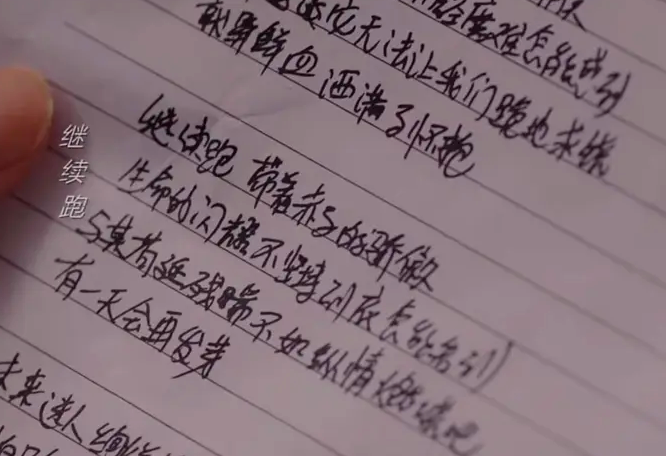 难怎能感到
命运它无法让我们跪地求饶
就算鲜血 洒满了怀抱
继续跑
继续跑 带着赤子的骄傲
生命的闪耀不坚持到底怎能看到
与其苟延残喘不如纵情燃烧吧
有一天会再发芽
未来迷人绚